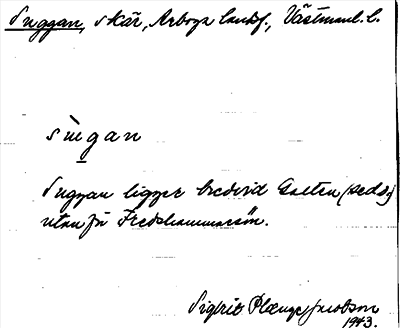 Suggan, skär, Arboga landsf., Västmanl. l.
sùgan
Suggan ligger bredvid Galten (se d.o.)
utanför Fredshammarsön.
Sigfrid Plænge Jacobson
1943.